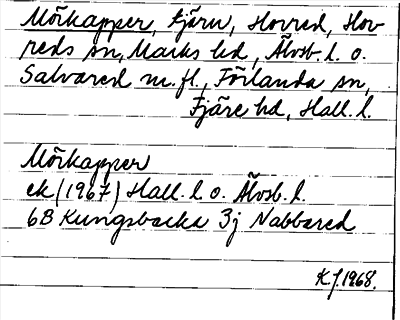 Mörkapper, tjärn, Hovred, Hov-
reds sn, Marks hd, Älvsb. l. o.
Salvared m. fl., Förlanda sn,
Fjäre hd, Hall. l.
Mörkapper
ek (1967) Hall. l o. Älvsb. l.
6B Kungsbacka 3j Nabbared
KJ. 1968.